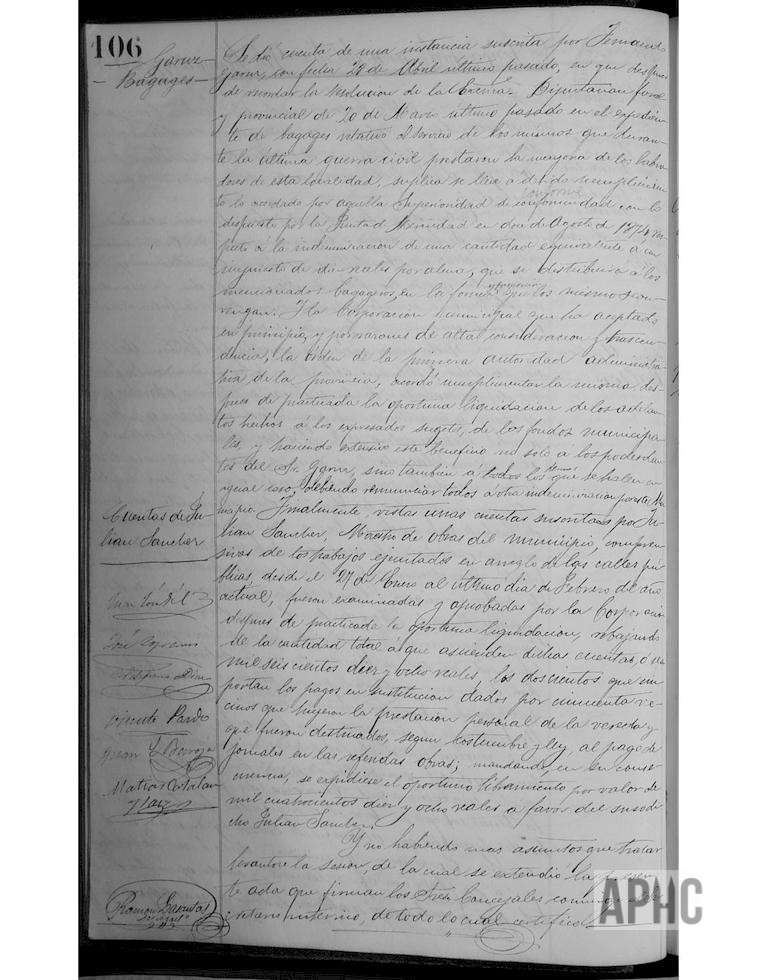 106
Garuz
Bagages
Se dió cuenta de una instancia suscrita por Fernando
Garuz, con fecha 28 de Abril último pasado, en que despues
de recordar la resolucion de la Excma. Diputacion foral
y provincial de 20 de Marzo último pasado en el expedien-
te de bagages relativo al servicio de los mismos que duran-
te la última guerra civil prestaron la mayoria de los labra-
dores de esta localidad, suplica se lleve a debido cumplimien-
to lo acordado por aquella Superioridad de conformidad con lo
dispuesto por la Junta de Hermindad en doce de Agosto de 1874 res-
pecto á la indemnizacion de una cantidad equivalente á un
impuesto de diez reales por alma, que se distribuirá a los
mencionados bagageros, en la forma que los mismos con-
vengan. Y la Corporacion municipal que ha aceptado
en principio, y por razones de alta consideracion y trascen-
dencia, la órden de la primera autoridad administra-
tiva de la provincia, acordó cumplimentar la misma, des-
pues de practicada la oportuna liquidacion de los adelan-
tos hechos á los expresados sugetos, de los fondos municipa-
les, y haciendo extensivo este beneficio no solo a los poderdan-
tes del Sr. Garuz, sino también á todos los demás que se hallen en
igual caso, debiendo renunciar todos a otra indemnizacion por este
Cuentas de Ju-
lian Sanchez
Finalmente, vistas unas cuentas suscritas por Ju-
lian Sanchez, Maestro de obras del municipio, compren-
sivas de los trabajos ejecutados en arreglo de las calles pú-
blicas, desde el 27 de Enero al último dia de Febrero del año
actual, fueron examinadas y aprobadas por la Corporacion
despues de practicada la oportuna liquidacion, rebajando
de la cantidad total á que ascienden dichas cuentas, ó sea
mil seiscientos diez y ocho reales, los doscientos que im-
portan los pagos en sustitucion dados por cincuenta ve-
cinos que hicieron la prestacion personal de la vereda y
que fueron destinados, segun costumbre y ley, al pago de
jornales en las referidas obras; mandando, en su conse-
cuencia, se expidiese el oportuno libramiento por valor de
mil cuatrocientos diez y ocho reales a favor del susodi-
cho Julian Sanchez.
Y no habiendo mas asuntos que tratar
levantose la sesion, de la cual se extendio la presen-
te acta que firman los Sres. Concejales conmigo el Se-
cretario interino, de todo lo cual certifico
José
Vicente Pardo
Juan
Matias Catalan
y Laiz
Ramon
APHC